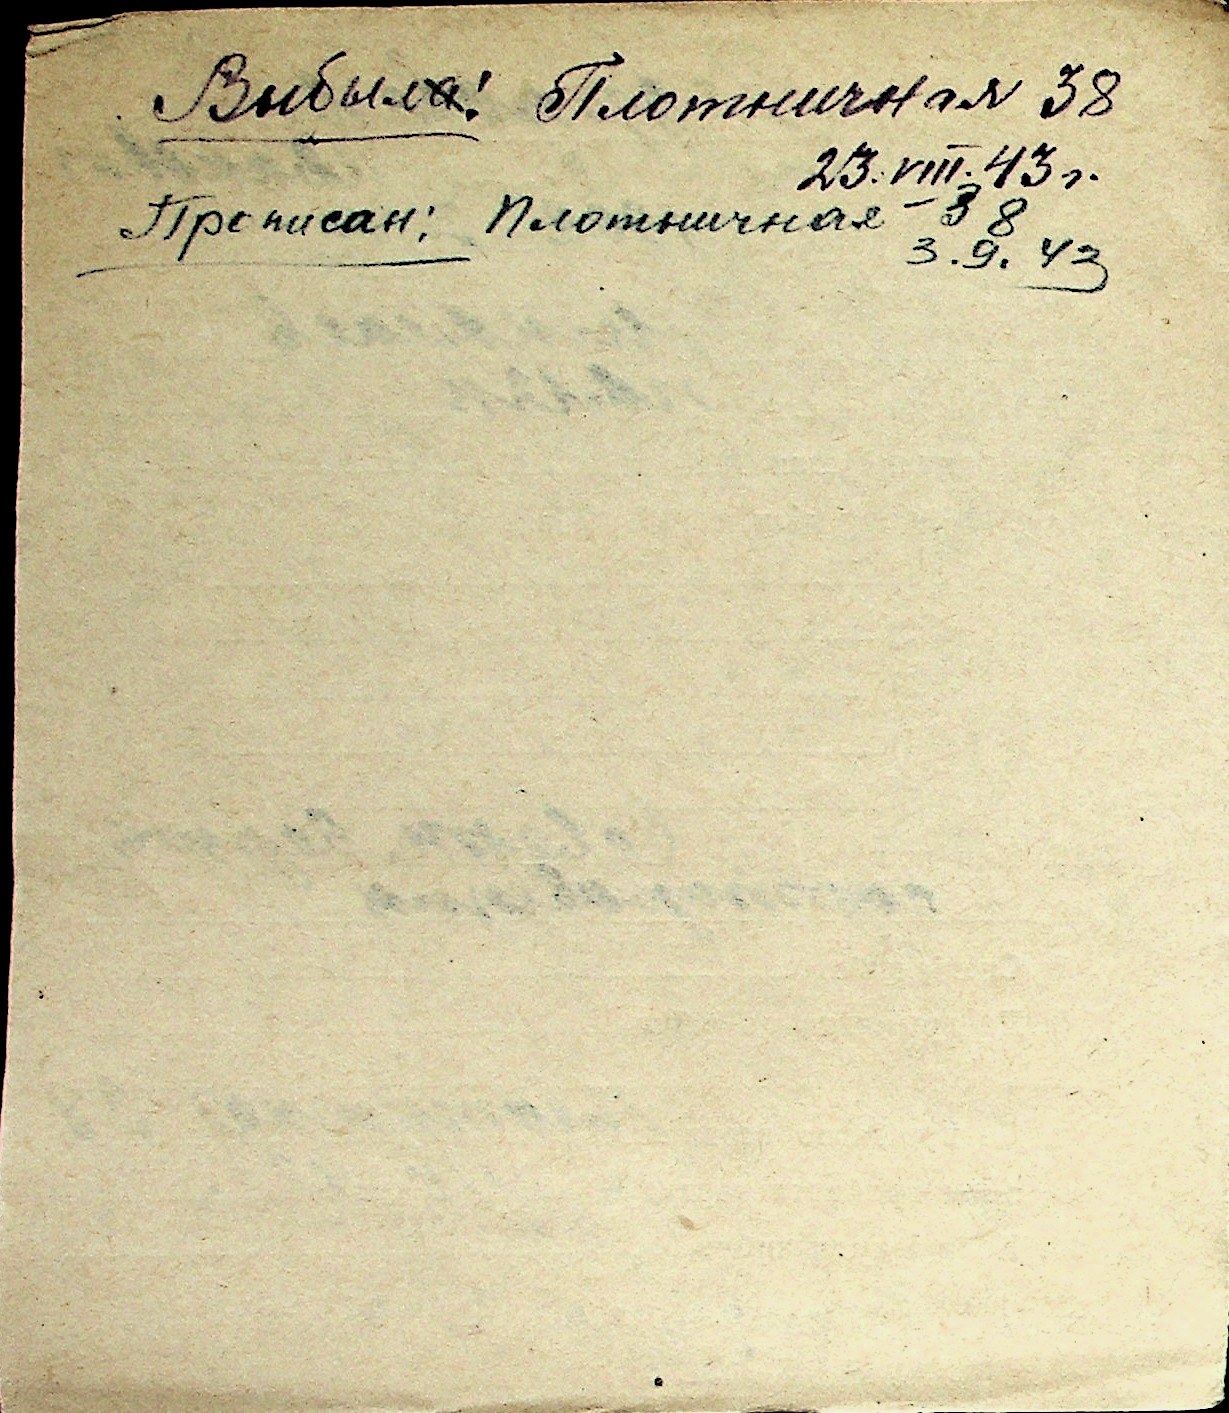 Выбыл! Плотничная 38
23.VIII.43г.
Прописан: Плотничная - 38
3.9.43